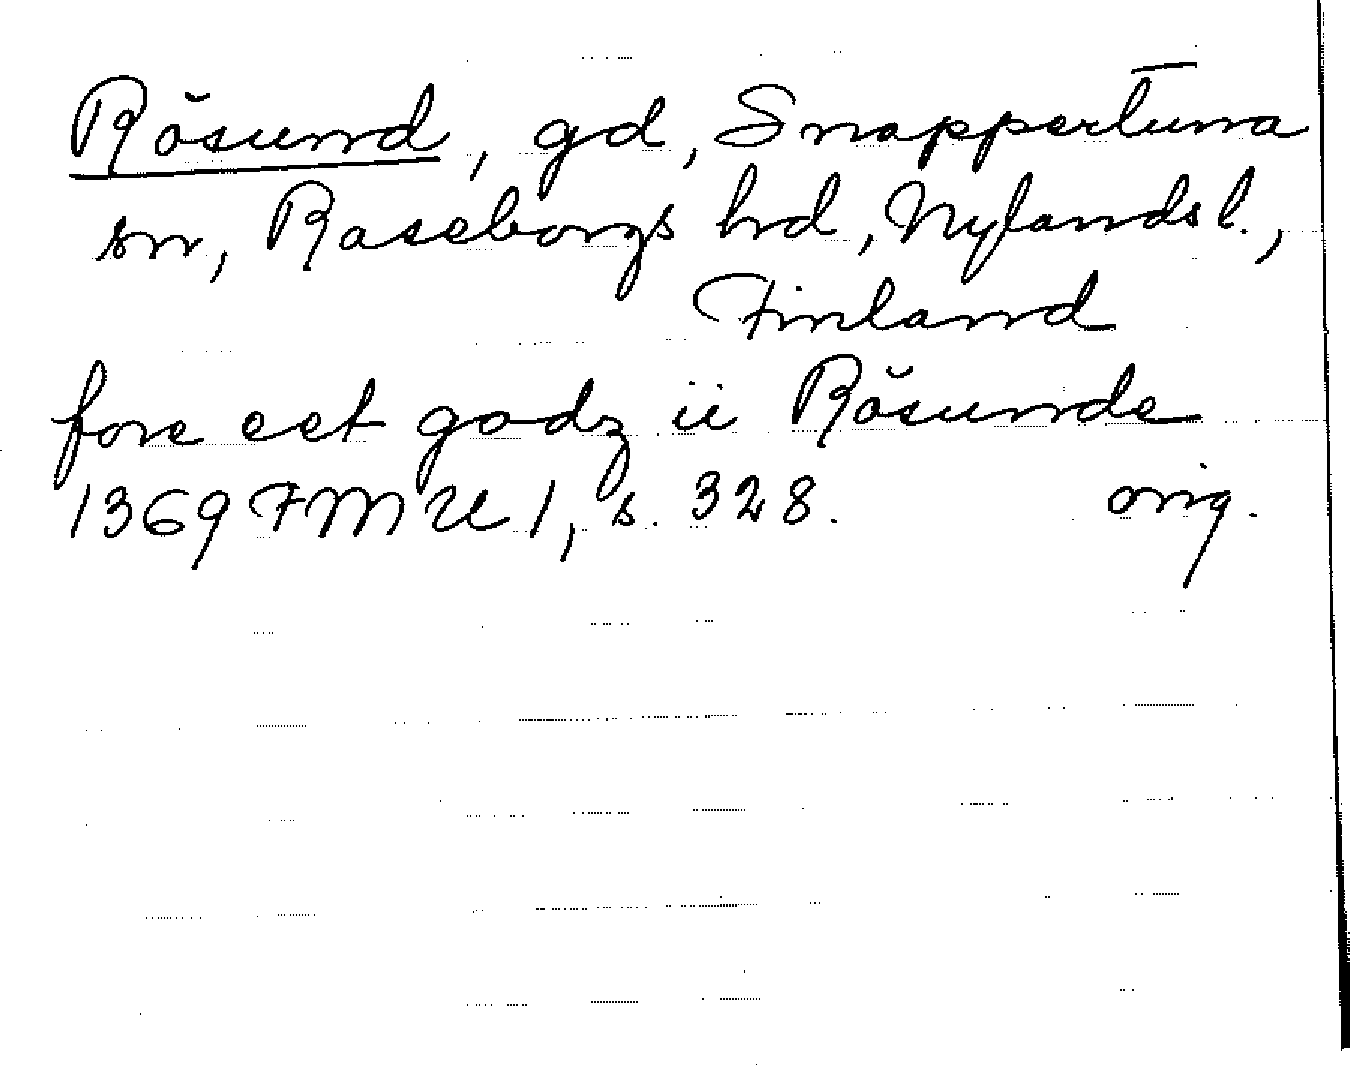 Rösund, gd, Snappertuna
sn, Raseborgs hrd, Nylands l.,
Finland
fore eet godz ii Rösunde
1369 FMU 1, s. 328. orig.